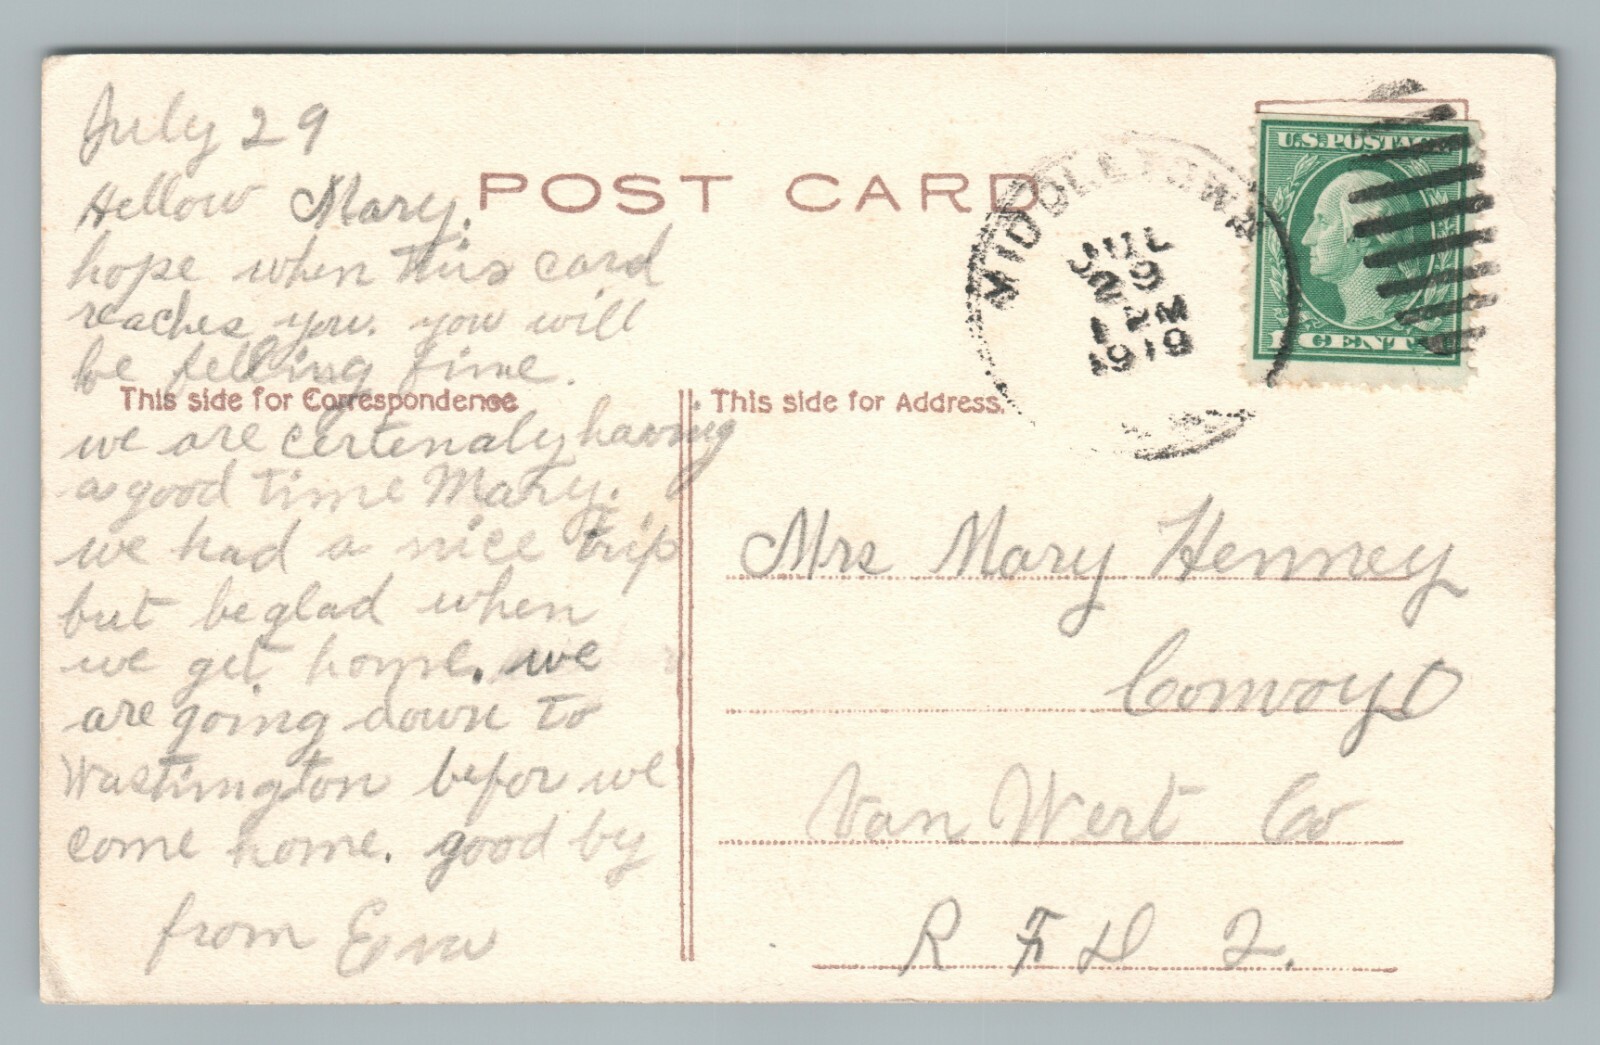 July 29
Hellow Mary.
hope when this card
reaches you. you will
be felling fine.
we are certenaly having
a good time Mary.
we had a nice trip
but be glad when
we get home. we
are going down to
Wastington befor we
come home. good by
from Eva
POST CARD
This side for Correspondence
This side for Address.
MIDDLETOWN
JUL
29
1 PM
1919
U.S. POSTAGE
1 CENT 1
Mrs Mary Henney
Convoy O
Van Wert Co
R F D 2.